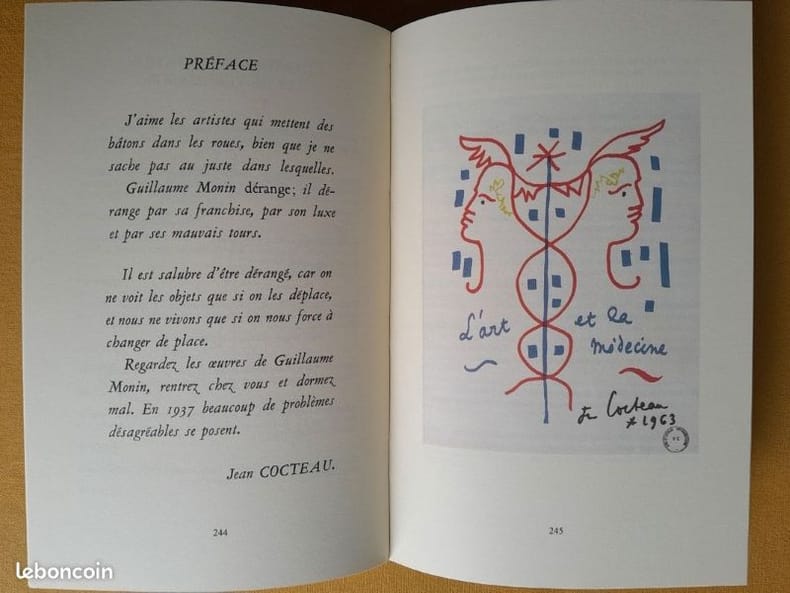 PRÉFACE
J'aime les artistes qui mettent des
bâtons dans les roues, bien que je ne
sache pas au juste dans lesquelles.
Guillaume Monin dérange; il dé-
range par sa franchise, par son luxe
et par ses mauvais tours.
Il est salubre d'être dérangé, car on
ne voit les objets que si on les déplace,
et nous ne vivons que si on nous force à
changer de place.
Regardez les œuvres de Guillaume
Monin, rentrez chez vous et dormez
mal. En 1937 beaucoup de problèmes
désagréables se posent.
Jean COCTEAU.
244
L'art et la
médecine
Jn Cocteau
* 1963
245
leboncoin